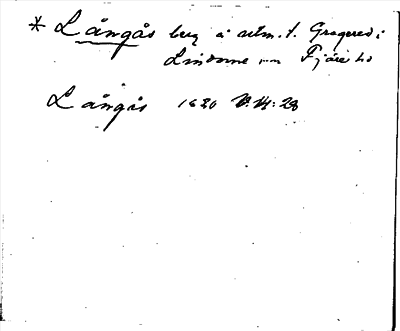 * Långås berg å utm. t. Gragered i
Lindome sn Fjäre hd
Långås 1620 N.H: 28